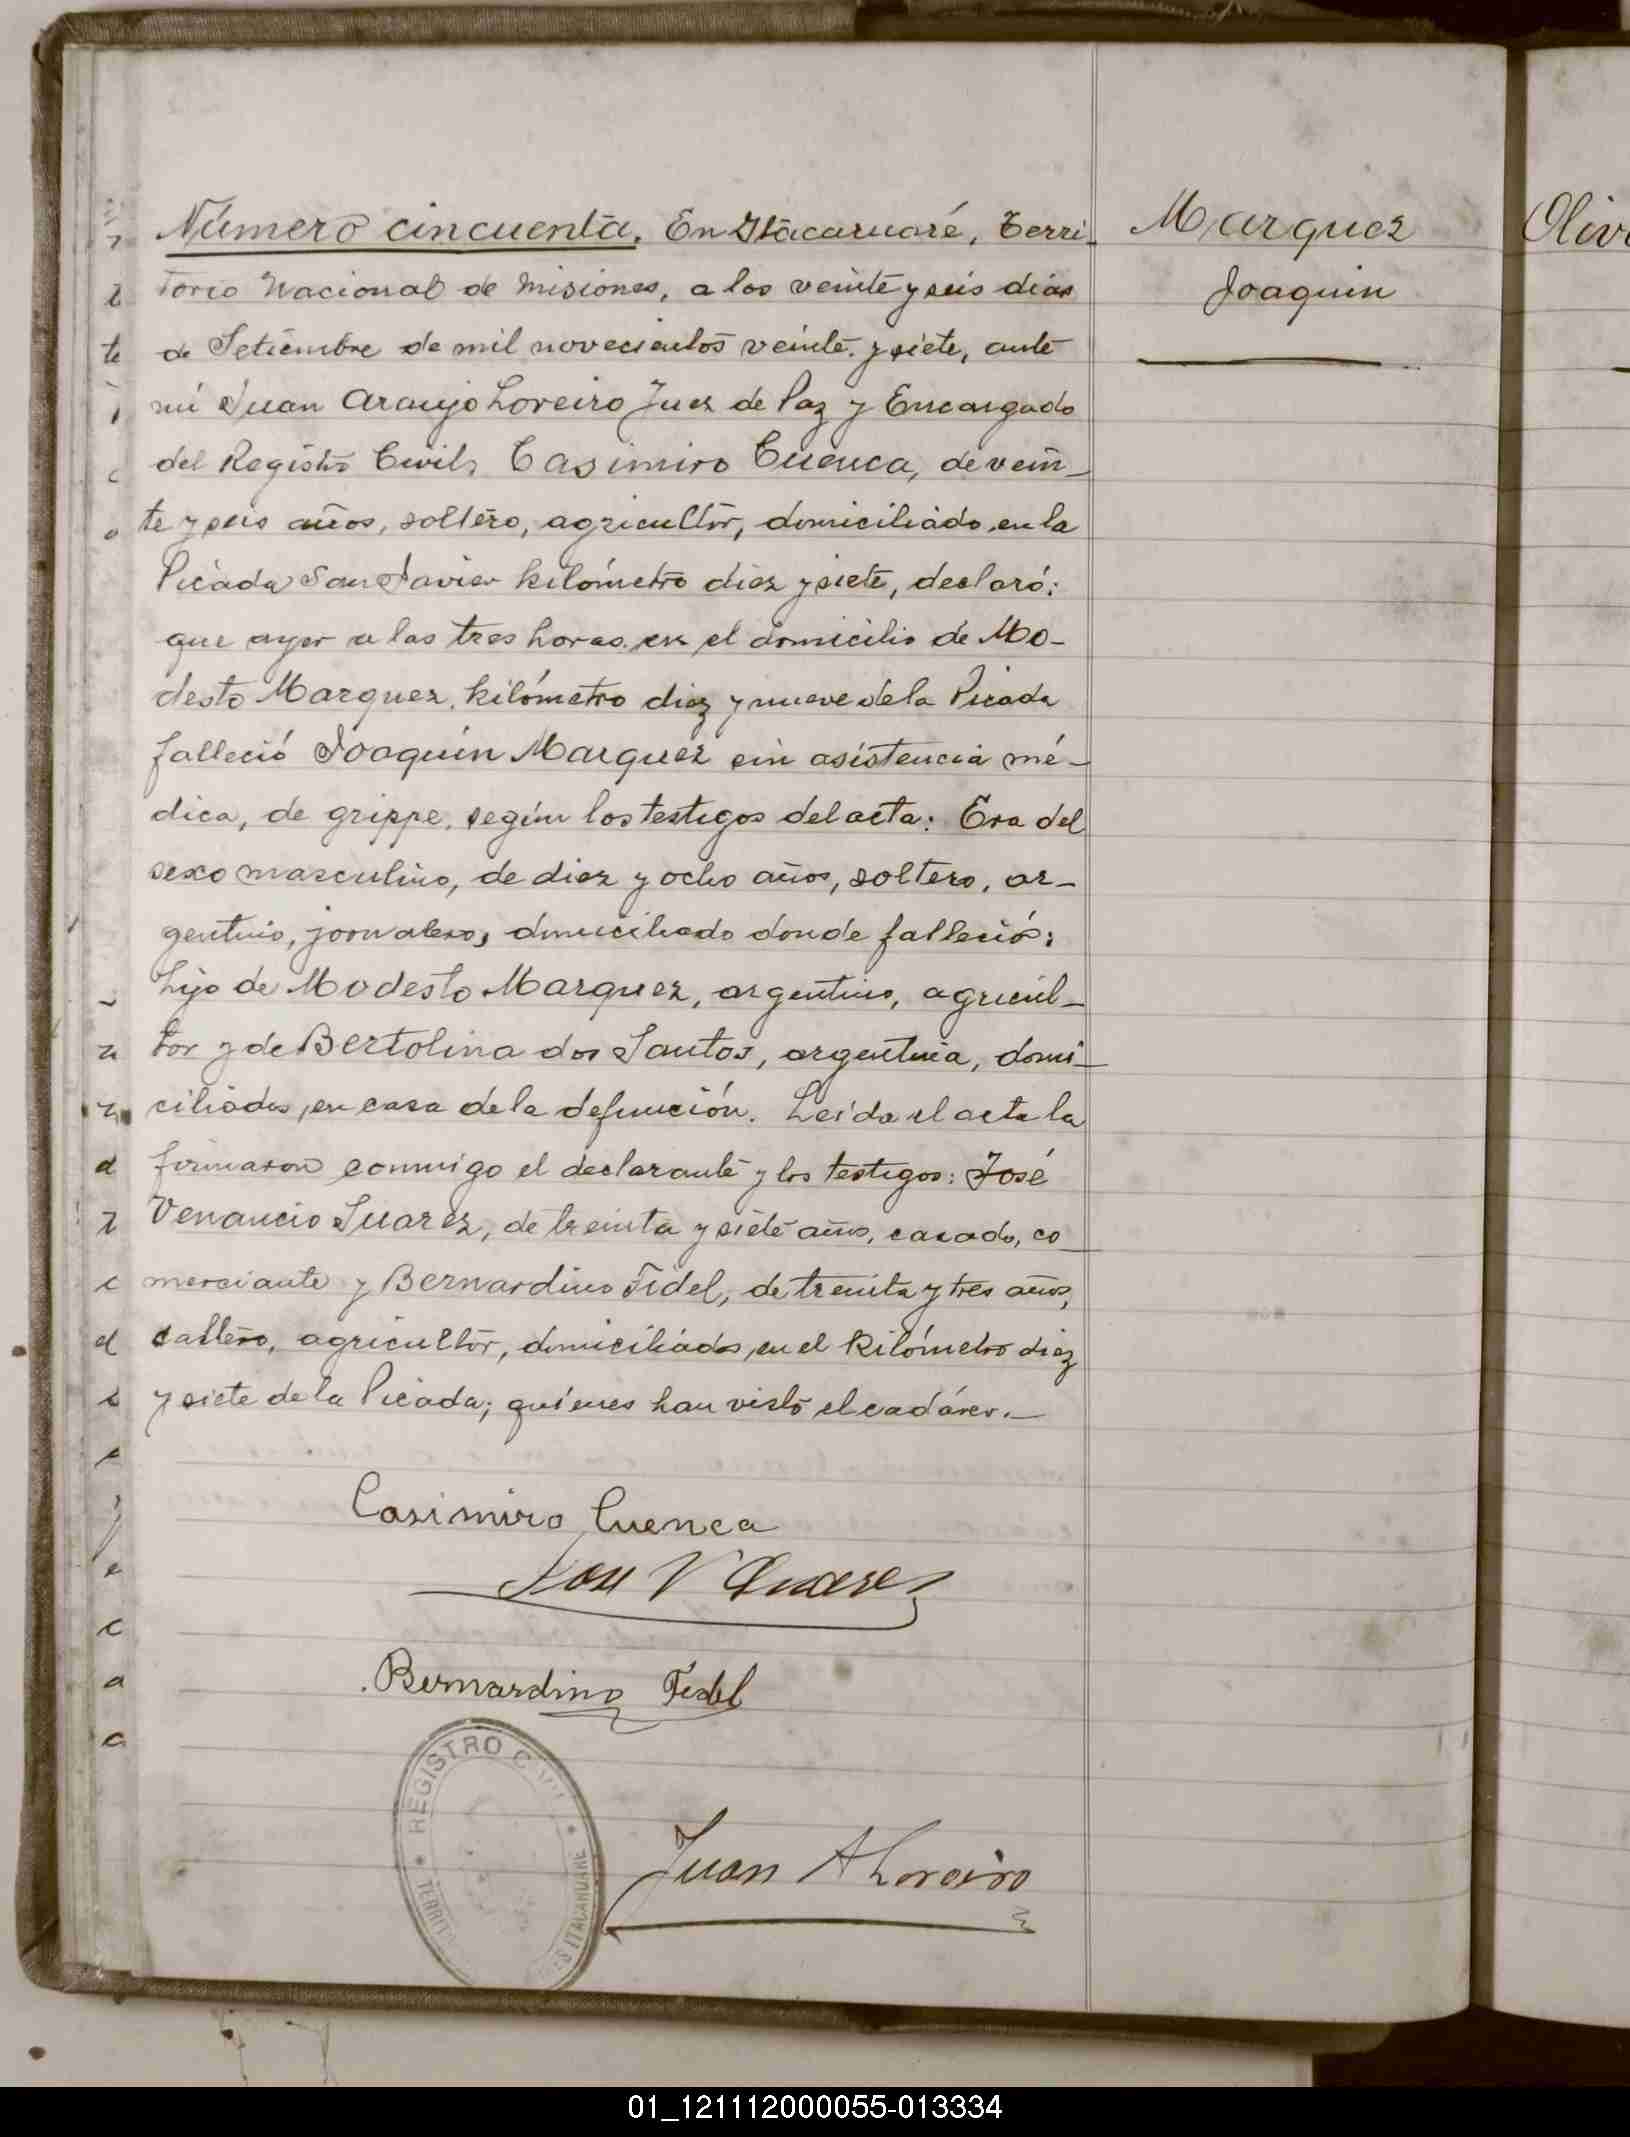 Número cincuenta. En Itacaruaré, Terri-
torio Nacional de Misiones, a los veinte y seis dias
de Setiembre de mil novecientos veinte y siete, ante
mi Juan Araujo Loreiro Juez de Paz y Encargado
del Registro Civil, Casimiro Cuenca, de vein-
te y seis años, soltero, agricultor, domiciliado en la
Picada San Javier kilómetro diez y siete, declaró:
que ayer a las tres horas en el domicilio de Mo-
desto Marquez, kilómetro diez y nueve de la Picada
falleció Joaquin Marquez sin asistencia mé-
dica, de grippe, según los testigos del acta: Era del
sexo masculino, de diez y ocho años, soltero, ar-
gentino, jornalero, domiciliado donde falleció:
hijo de Modesto Marquez, argentino, agricul-
tor y de Bertolina dos Santos, argentina, domi-
ciliados en casa de la defunción. Leida el acta la
firmaron conmigo el declarante y los testigos: José
Venancio Suarez, de treinta y siete años, casado, co-
merciante y Bernardino Fidel, de treinta y tres años,
soltero, agricultor, domiciliados en el kilómetro diez
y siete de la Picada; quienes han visto el cadáver.—
Casimiro Cuenca
José V Suarez
Bernardino Fidel
REGISTRO CIVIL
ITACARUARE
Juan A Loreiro
Marquez
Joaquin
Oliv
01_121112000055-013334